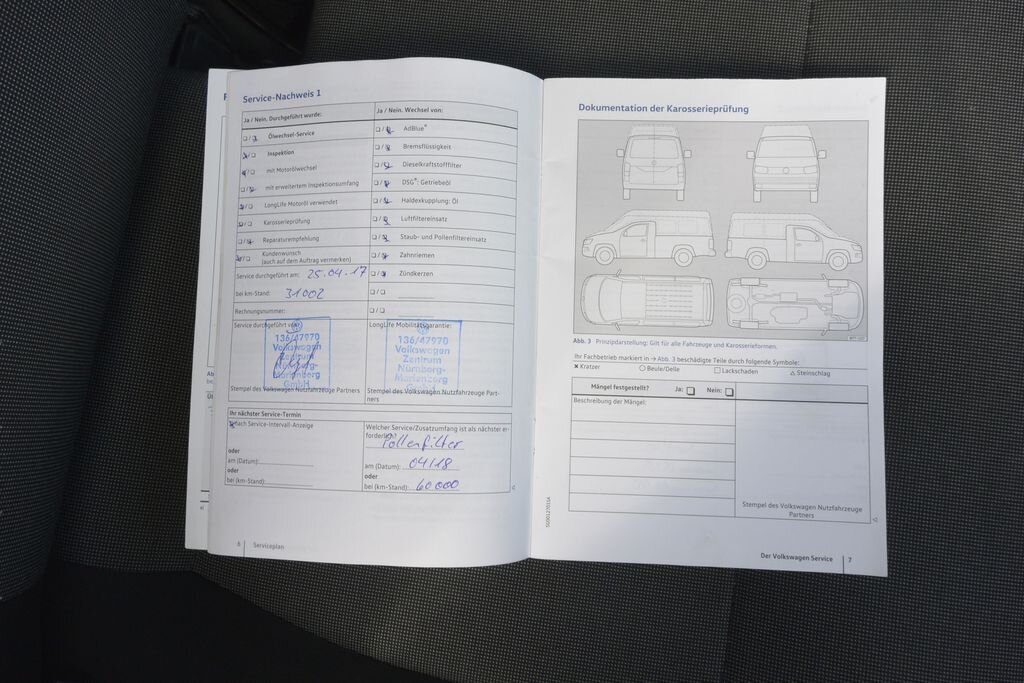 Service-Nachweis 1
Ja / Nein. Durchgeführt wurde:
Ölwechsel-Service
Inspektion
mit Motorölwechsel
mit erweitertem Inspektionsumfang
LongLife Motoröl verwendet
Karosserieprüfung
Reparaturempfehlung
Kundenwunsch
(auch auf dem Auftrag vermerken)
Service durchgeführt am: 25.04.17
bei km-Stand: 31002
Rechnungsnummer:
Ja / Nein. Wechsel von:
AdBlue®
Bremsflüssigkeit
Dieselkraftstofffilter
DSG®: Getriebeöl
Haldexkupplung: Öl
Luftfiltereinsatz
Staub- und Pollenfiltereinsatz
Zahnriemen
Zündkerzen
Service durchgeführt von:
136/47970
Volkswagen
Zentrum
Nürnberg-
Marienberg
GmbH
Stempel des Volkswagen Nutzfahrzeuge Partners
LongLife Mobilitätsgarantie:
136/47970
Volkswagen
Zentrum
Nürnberg-
Marienberg
GmbH
Stempel des Volkswagen Nutzfahrzeuge Part-
ners
Ihr nächster Service-Termin
nach Service-Intervall-Anzeige
oder
am (Datum):
oder
bei (km-Stand):
Welcher Service/Zusatzumfang ist als nächster er-
forderlich?
Pollenfilter
am (Datum): 04/18
oder
bei (km-Stand): 60000
6 Serviceplan
Dokumentation der Karosserieprüfung
Abb. 3 Prinzipdarstellung: Gilt für alle Fahrzeuge und Karosserieformen.
Ihr Fachbetrieb markiert in → Abb. 3 beschädigte Teile durch folgende Symbole:
Kratzer
Beule/Delle
Lackschaden
Steinschlag
Mängel festgestellt? Ja: Nein:
Beschreibung der Mängel:
Stempel des Volkswagen Nutzfahrzeuge
Partners
Der Volkswagen Service 7